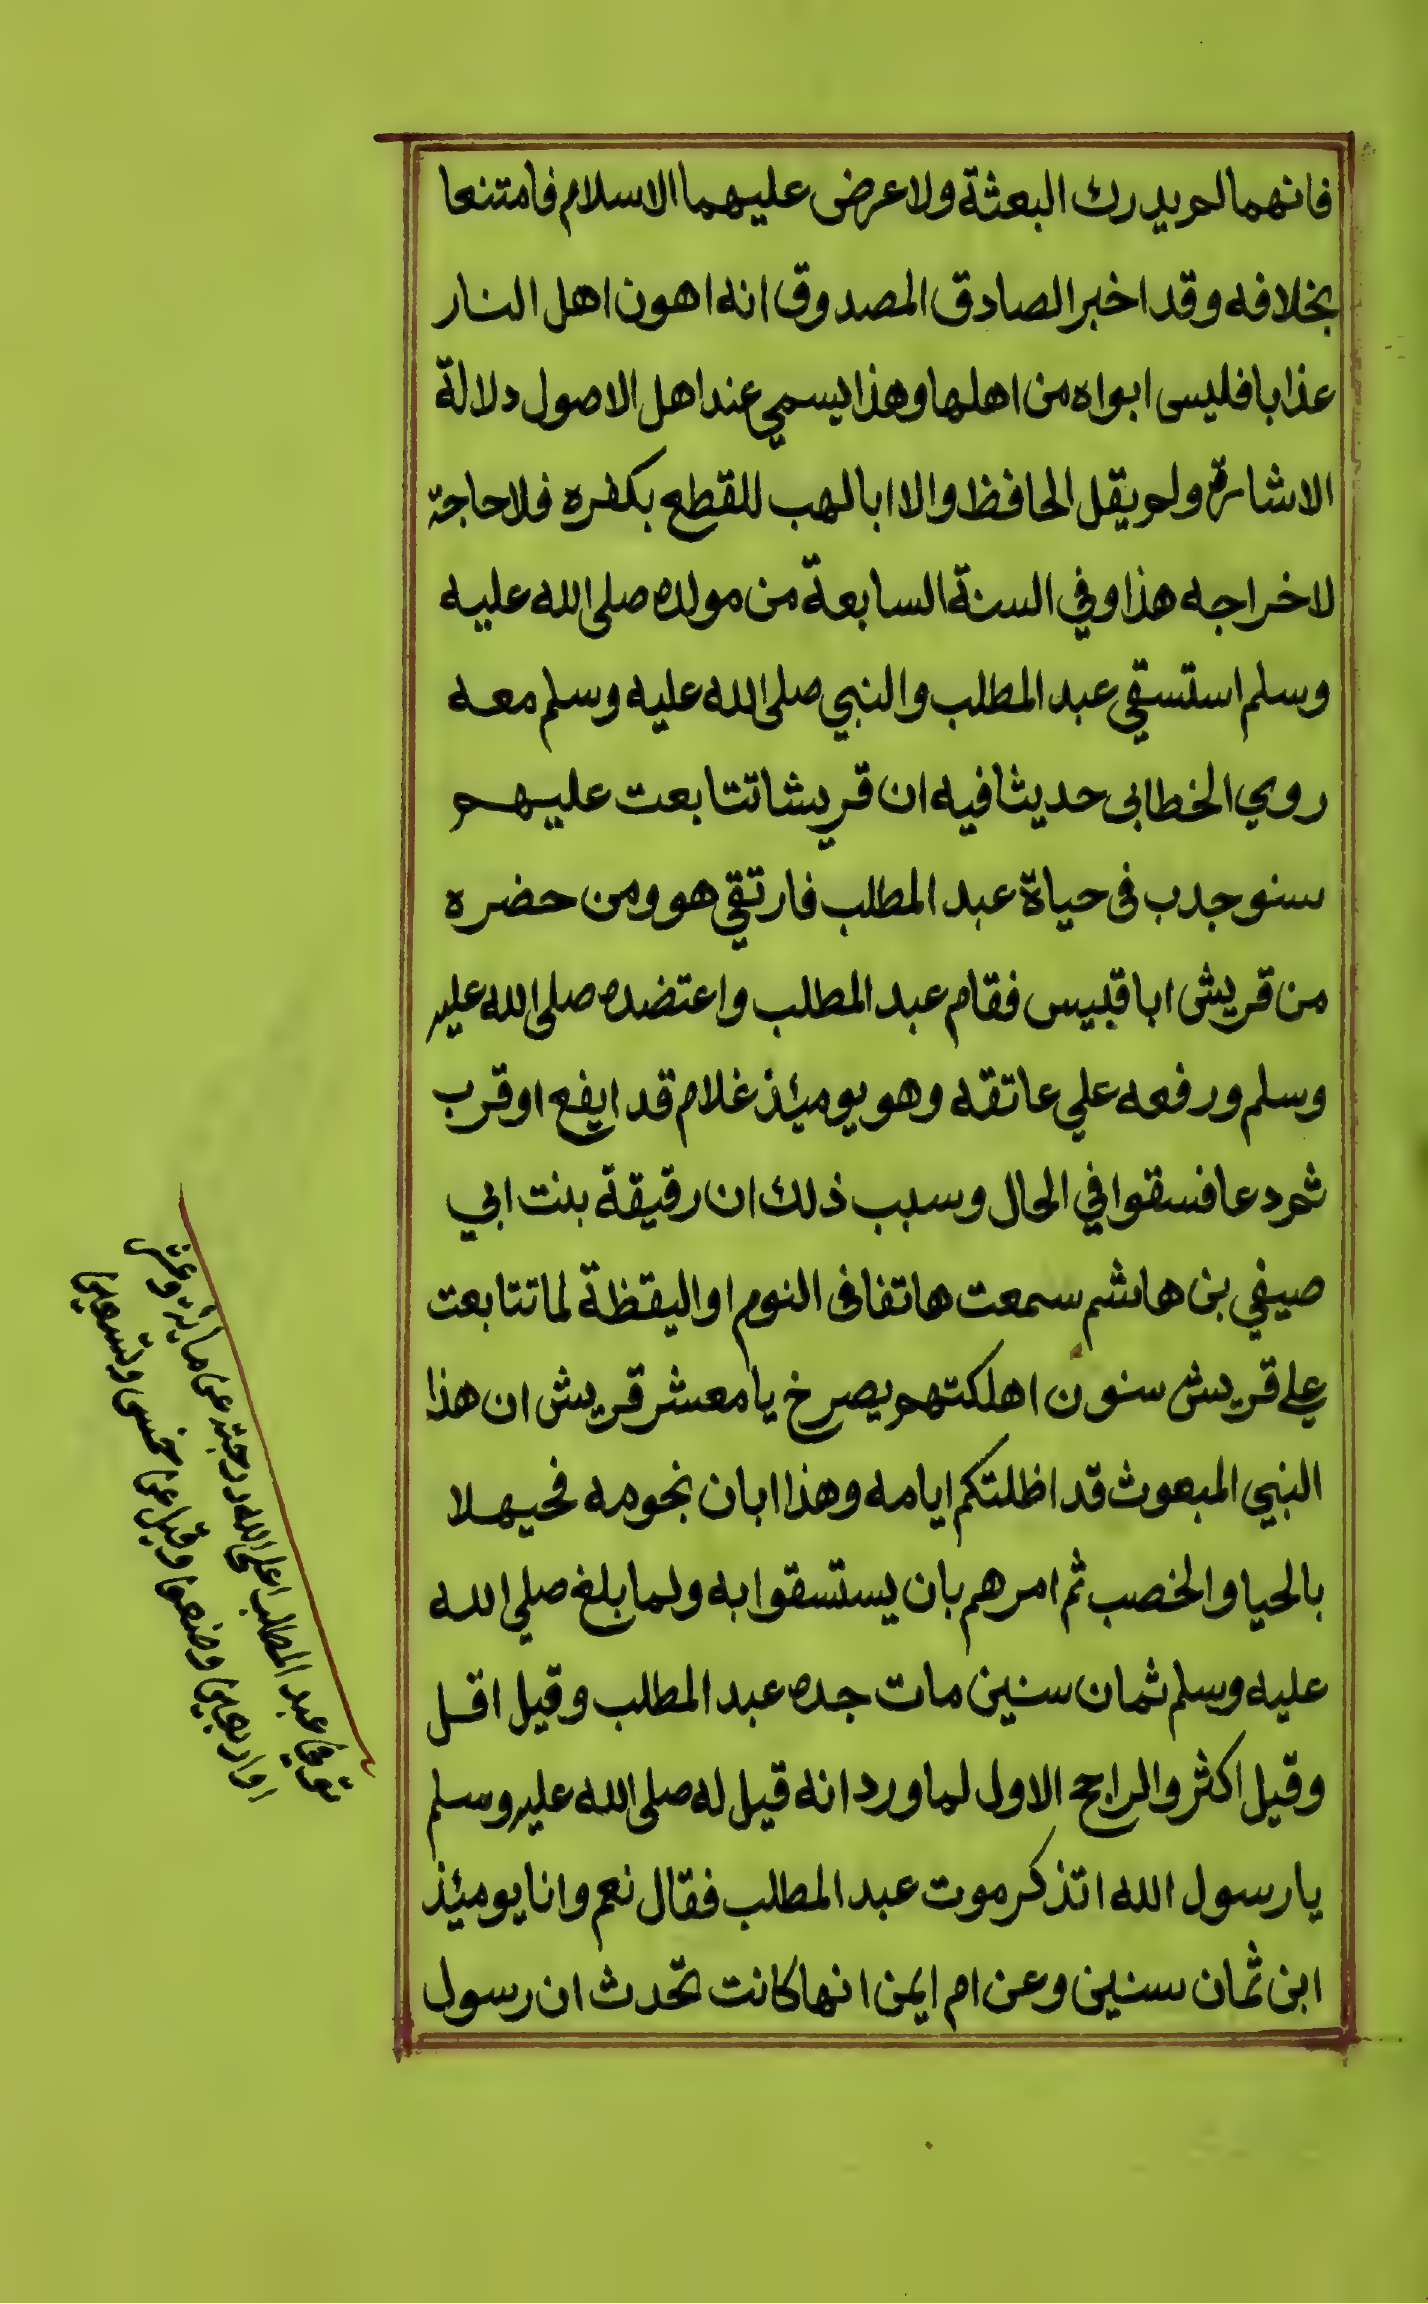 فانهما لم يدرك البعثة ولا عرض عليهما الاسلام فامتنعا
بخلافه وقد اخبر الصادق المصدوق انه اهون اهل النار
عذابا فليس ابواه من اهلها وهذا يسمي عند اهل الاصول دلالة
الاشارة ولم يقل الحافظ والا ابا لهب للقطع بكفره فلا حاجة
لاخراجه هذا وفي السنة السابعة من مولده صلى الله عليه
وسلم استسقي عبد المطلب والنبي صلى الله عليه وسلم معه
روي الخطابى حديثا فيه ان قريشا تتابعت عليهم
سنو جدب فى حياة عبد المطلب فارتقي هو ومن حضره
من قريش ابا قبيس فقام عبد المطلب واعتضده صلى الله عليه
وسلم ورفعه علي عاتقه وهو يومئذ غلام قد ايفع او قرب
ثم دعا فسقوا في الحال وسبب ذلك ان رقيقة بنت ابي
صيفي بن هاشم سمعت هاتفا فى النوم او اليقظة لما تتابعت
علي قريش سنون اهلكتهم يصرخ يا معشر قريش ان هذا
النبي المبعوث قد اظلتكم ايامه وهذا ابان نجومه فحيهلا
بالحيا والخصب ثم امرهم بان يستسقوا به ولما بلغ صلي الله
عليه وسلم ثمان سنين مات جده عبد المطلب وقيل اقل
وقيل اكثر والراجح الاول لما ورد انه قيل له صلى الله عليه وسلم
يا رسول الله اتذكر موت عبد المطلب فقال نعم وانا يومئذ
ابن ثمان سنين وعن ام ايمن انها كانت تحدث ان رسول
توفي عبد المطلب اعلى الله درجته عن مائة وعشر
او اربعين وضعفا وقيل عن خمس وتسعين